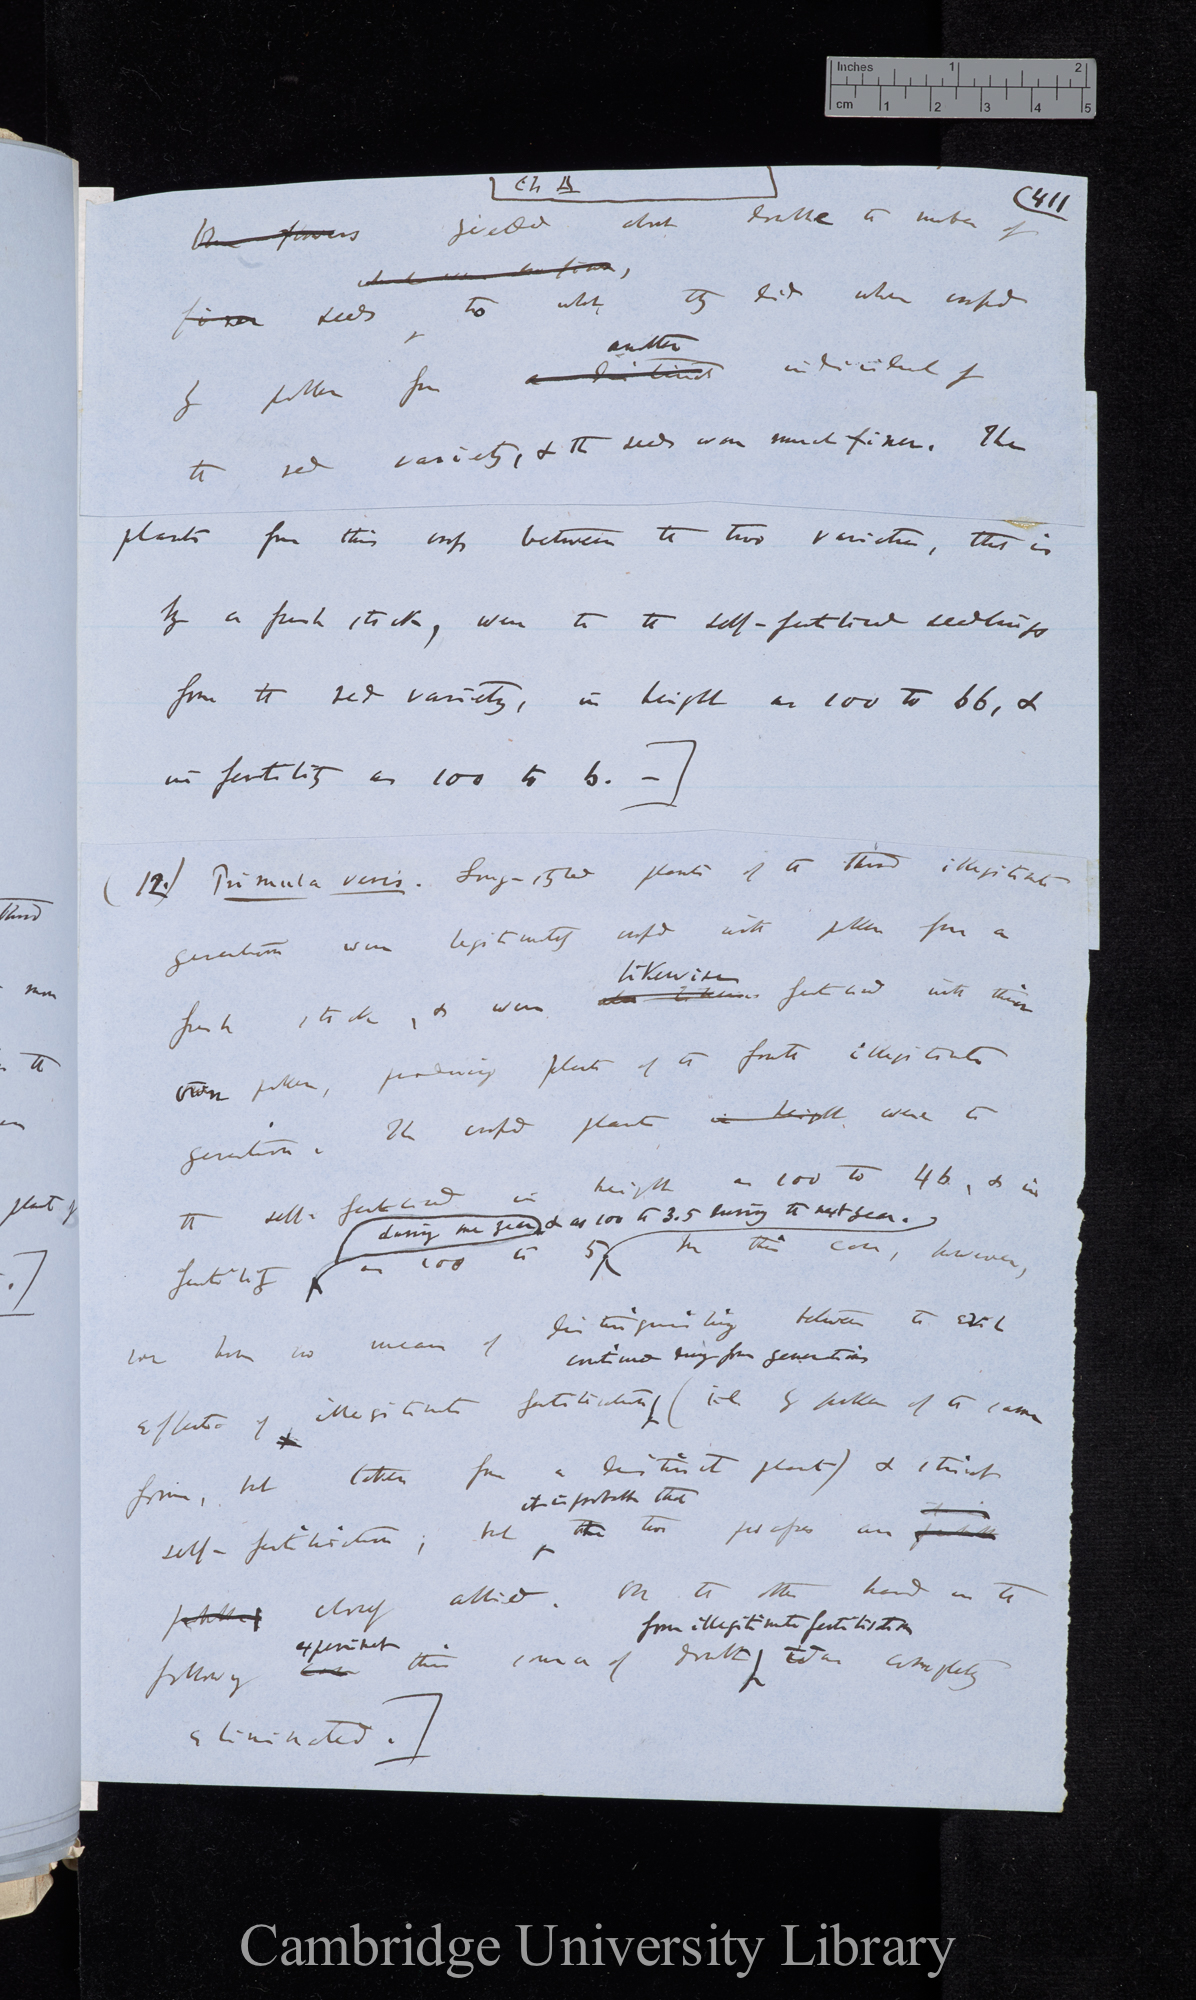 Inches 1 2
cm 1 2 3 4 5
Ch
(411
flowers yielded about double the number of
finer seeds, to what they did when crossed
another
by pollen from a distinct individual of
the red variety, & the seeds were much finer. The
plants from this cross between the two varieties, that is
by a fresh stock, were to the self-fertilised seedlings
from the red variety, in height as 100 to 66, &
in fertility as 100 to 6. —]
(12.) Primula veris. Long-styled plants of the third illegitimate
generation were legitimately crossed with pollen from a
likewise
fresh stock, & were fertilised with their
own pollen, producing plants of the fourth illegitimate
generation. The crossed plants in height were to
the self-fertilised in height as 100 to 46, & in
during one year, & as 100 to 3.5 during the next year.
fertility as 100 to 5 In this case, however,
we have no means of distinguishing between the evil
continued during four generations
effects of illegitimate fertilisation (ie by pollen of the same
form, but taken from a distinct plant) & strict
it is probable that
self-fertilisation; but the two processes are
closely allied. On the other hand in the
experiment from illegitimate fertilisation
following this source of doubt was completely
eliminated.]
third
the
plant of
.]
Cambridge University Library